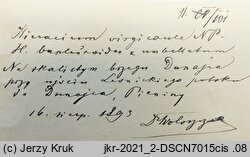 Hieracium virgicaule N.P.
H. bupleuroides × umbellatum
Na skalistym brzegu Dunajca
przy ujściu Leśnickiego potoku
do Dunajca, Pieniny
16. sierp. 1893
Dr Wołoszczak
(c) Jerzy Kruk
jkr-2021_2-DSCN7015cis_08